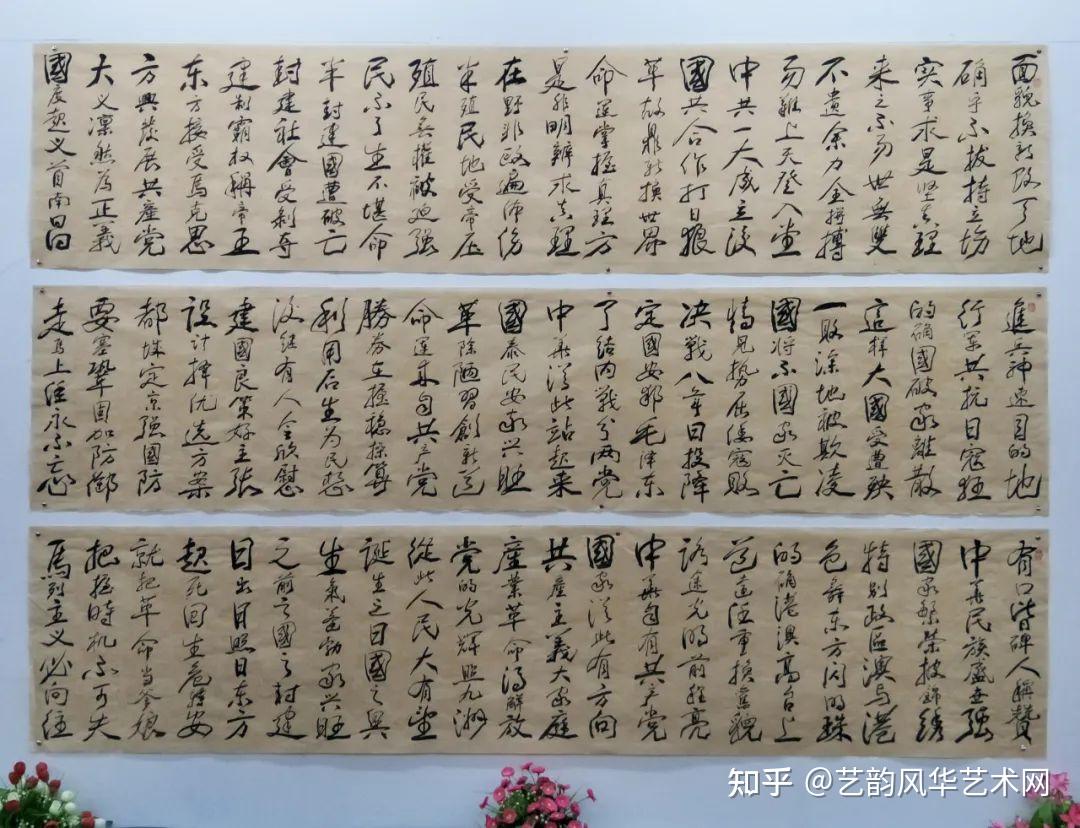 面貌换新改了地
确乎不拔持立场
实事求是坚真理
来之不易世無雙
不遗余力全拼搏
易難上天登入堂
中共一大成立後
國共合作打日狼
革故鼎新换世界
命運掌握真理方
是非明辨求真理
在野非欧遍体伤
半殖民地受帝压
殖民無權被迫强
民不了生不堪命
半封建國遭破亡
封建社會受剥夺
建制霸权稱帝王
东方接受马克思
方興发展共產党
大义凛然为正義
國度起义首南昌
進兵神速目的地
行军共抗日寇狂
的确國破家離散
這样大國受遭殃
一败涂地被欺凌
國将不國家灭亡
情见势屈倭寇败
决战八年日投降
定國安邦毛泽东
了结内战兮两党
中华從此站起来
國泰民安家兴旺
革除陋習創新
命運来自共产党
勝券在握穩操
利用后生为民
後继有人全欣慰
建國良策好主张
设计择优选方案
都城定京强國防
要塞鞏固加防御
走马上任永不忘
有口皆碑人稱赞
中华民族盛世强
國家繁荣披锦绣
特别政區澳与港
色舞东方闪明珠
的确港澳高台上
道远任重换舊貌
路途光明前程亮
中华自有共产党
國家從此有方向
共產主義大家庭
產業革命得解放
党的光輝照九洲
從此人民大有望
誕生之日國之興
生氣蓬勃家兴旺
之前之國之封建
日出日照日东方
起死回生危转安
就把革命当爹娘
把握时机不可失
馬列主义必向往
知乎 @艺韵风华艺术网